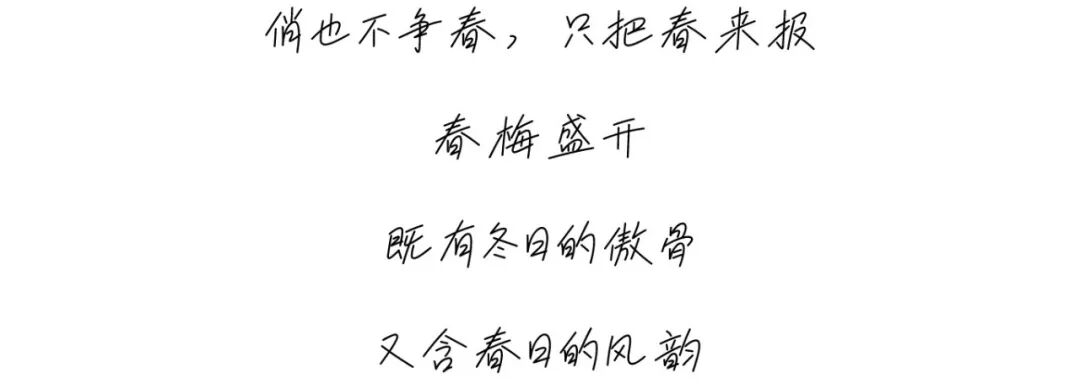 俏也不争春，只把春来报
春梅盛开
既有冬日的傲骨
又含春日的风韵